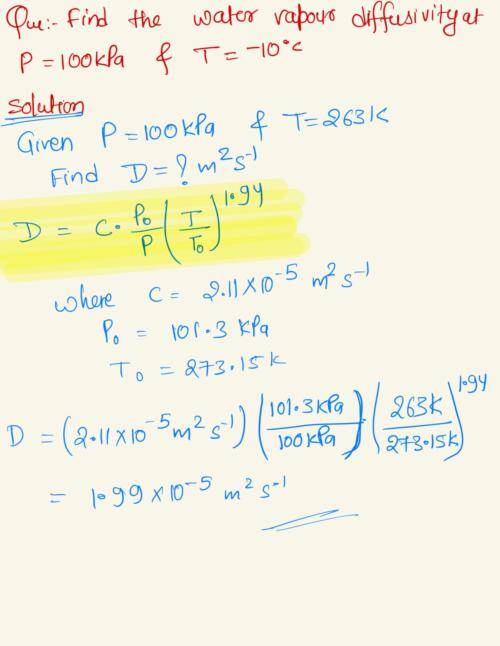 Que:- Find the water vapour diffusivity at
P = 100kPa & T = -10°C
Solution
Given P = 100kPa & T = 263K
Find D = ? m²s⁻¹
D = C · P₀/P (T/T₀)^1.94
where C = 2.11×10⁻⁵ m² s⁻¹
P₀ = 101.3 kPa
T₀ = 273.15K
D = (2.11×10⁻⁵ m² s⁻¹) (101.3kPa/100kPa) · (263K/273.15K)^1.94
= 1.99×10⁻⁵ m² s⁻¹